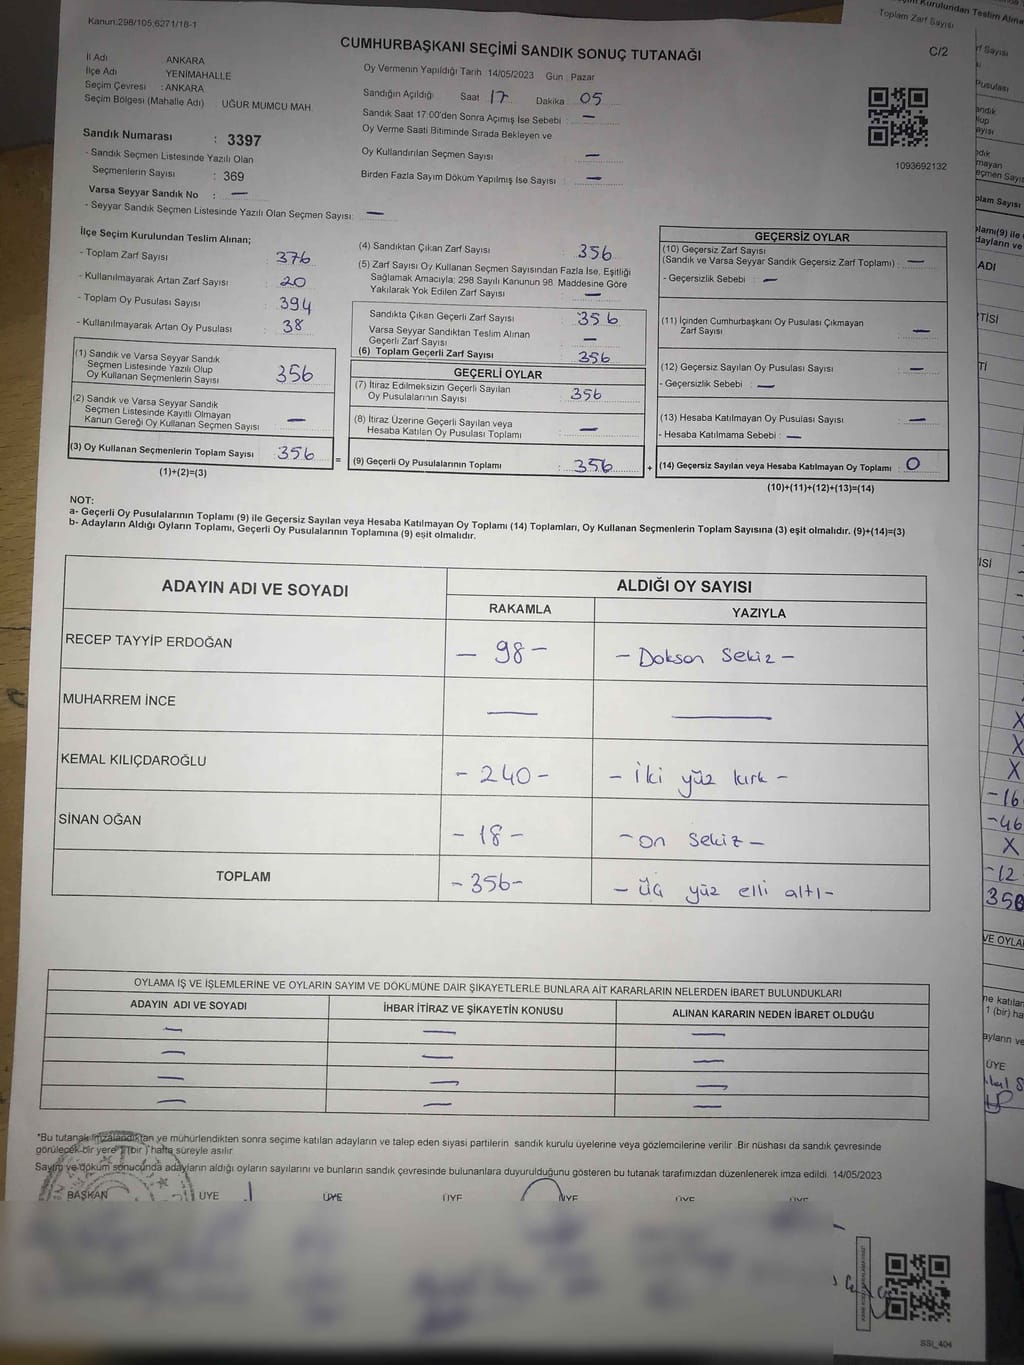 Kanun.298/105;6271/18-1
CUMHURBAŞKANI SEÇİMİ SANDIK SONUÇ TUTANAĞI
C/2
İl Adı ANKARA
İlçe Adı YENİMAHALLE
Seçim Çevresi : ANKARA
Seçim Bölgesi (Mahalle Adı) : UĞUR MUMCU MAH.
Sandık Numarası : 3397
- Sandık Seçmen Listesinde Yazılı Olan
Seçmenlerin Sayısı : 369
Varsa Seyyar Sandık No : —
- Seyyar Sandık Seçmen Listesinde Yazılı Olan Seçmen Sayısı: —
Oy Vermenin Yapıldığı Tarih :14/05/2023 Gün : Pazar
Sandığın Açıldığı Saat 17 Dakika 05
Sandık Saat 17:00'den Sonra Açımış İse Sebebi : —
Oy Verme Saati Bitiminde Sırada Bekleyen ve
Oy Kullandırılan Seçmen Sayısı —
Birden Fazla Sayım Döküm Yapılmış İse Sayısı : —
1093692132
İlçe Seçim Kurulundan Teslim Alınan;
- Toplam Zarf Sayısı : 376
- Kullanılmayarak Artan Zarf Sayısı : 20
- Toplam Oy Pusulası Sayısı : 394
- Kullanılmayarak Artan Oy Pusulası : 38
(1) Sandık ve Varsa Seyyar Sandık
Seçmen Listesinde Yazılı Olup
Oy Kullanan Seçmenlerin Sayısı : 356
(2) Sandık ve Varsa Seyyar Sandık
Seçmen Listesinde Kayıtlı Olmayan
Kanun Gereği Oy Kullanan Seçmen Sayısı : —
(3) Oy Kullanan Seçmenlerin Toplam Sayısı : 356
(1)+(2)=(3)
=
(4) Sandıktan Çıkan Zarf Sayısı : 356
(5) Zarf Sayısı Oy Kullanan Seçmen Sayısından Fazla İse, Eşitliği
Sağlamak Amacıyla; 298 Sayılı Kanunun 98. Maddesine Göre
Yakılarak Yok Edilen Zarf Sayısı : —
Sandıkta Çıkan Geçerli Zarf Sayısı : 356
Varsa Seyyar Sandıktan Teslim Alınan
Geçerli Zarf Sayısı : —
(6) Toplam Geçerli Zarf Sayısı : 356
GEÇERLİ OYLAR
(7) İtiraz Edilmeksizin Geçerli Sayılan
Oy Pusulalarının Sayısı : 356
(8) İtiraz Üzerine Geçerli Sayılan veya
Hesaba Katılan Oy Pusulası Toplamı : —
(9) Geçerli Oy Pusulalarının Toplamı : 356
+
GEÇERSİZ OYLAR
(10) Geçersiz Zarf Sayısı
(Sandık ve Varsa Seyyar Sandık Geçersiz Zarf Toplamı) : —
- Geçersizlik Sebebi : —
(11) İçinden Cumhurbaşkanı Oy Pusulası Çıkmayan
Zarf Sayısı : —
(12) Geçersiz Sayılan Oy Pusulası Sayısı : —
- Geçersizlik Sebebi : —
(13) Hesaba Katılmayan Oy Pusulası Sayısı : —
- Hesaba Katılmama Sebebi : —
(14) Geçersiz Sayılan veya Hesaba Katılmayan Oy Toplamı : 0
(10)+(11)+(12)+(13)=(14)
NOT:
a- Geçerli Oy Pusulalarının Toplamı (9) ile Geçersiz Sayılan veya Hesaba Katılmayan Oy Toplamı (14) Toplamları, Oy Kullanan Seçmenlerin Toplam Sayısına (3) eşit olmalıdır. (9)+(14)=(3)
b- Adayların Aldığı Oyların Toplamı, Geçerli Oy Pusulalarının Toplamına (9) eşit olmalıdır.
ADAYIN ADI VE SOYADI ALDIĞI OY SAYISI
RAKAMLA YAZIYLA
RECEP TAYYİP ERDOĞAN — 98 — — Doksan Sekiz —
MUHARREM İNCE — —
KEMAL KILIÇDAROĞLU - 240 - - iki yüz kırk -
SİNAN OĞAN - 18 - - on sekiz -
TOPLAM - 356 - - üç yüz elli altı -
OYLAMA İŞ VE İŞLEMLERİNE VE OYLARIN SAYIM VE DÖKÜMÜNE DAİR ŞİKAYETLERLE BUNLARA AİT KARARLARIN NELERDEN İBARET BULUNDUKLARI
ADAYIN ADI VE SOYADI İHBAR İTİRAZ VE ŞİKAYETİN KONUSU ALINAN KARARIN NEDEN İBARET OLDUĞU
— — —
— — —
— — —
— — —
*Bu tutanak imzalandıktan ve mühürlendikten sonra seçime katılan adayların ve talep eden siyasi partilerin sandık kurulu üyelerine veya gözlemcilerine verilir. Bir nüshası da sandık çevresinde
görülecek bir yere 1 (bir ) hafta süreyle asılır.
Sayım ve döküm sonucunda adayların aldığı oyların sayılarını ve bunların sandık çevresinde bulunanlara duyurulduğunu gösteren bu tutanak tarafımızdan düzenlenerek imza edildi. 14/05/2023
BAŞKAN ÜYE ÜYE ÜYE ÜYE ÜYE ÜYE
SSİ_404
Kurulundan Teslim Alına
- Toplam Zarf Sayısı
Pusulası
ADI
-16
-46
X
-12
356
VE OYLA
1 (bir) ha
ÜYE